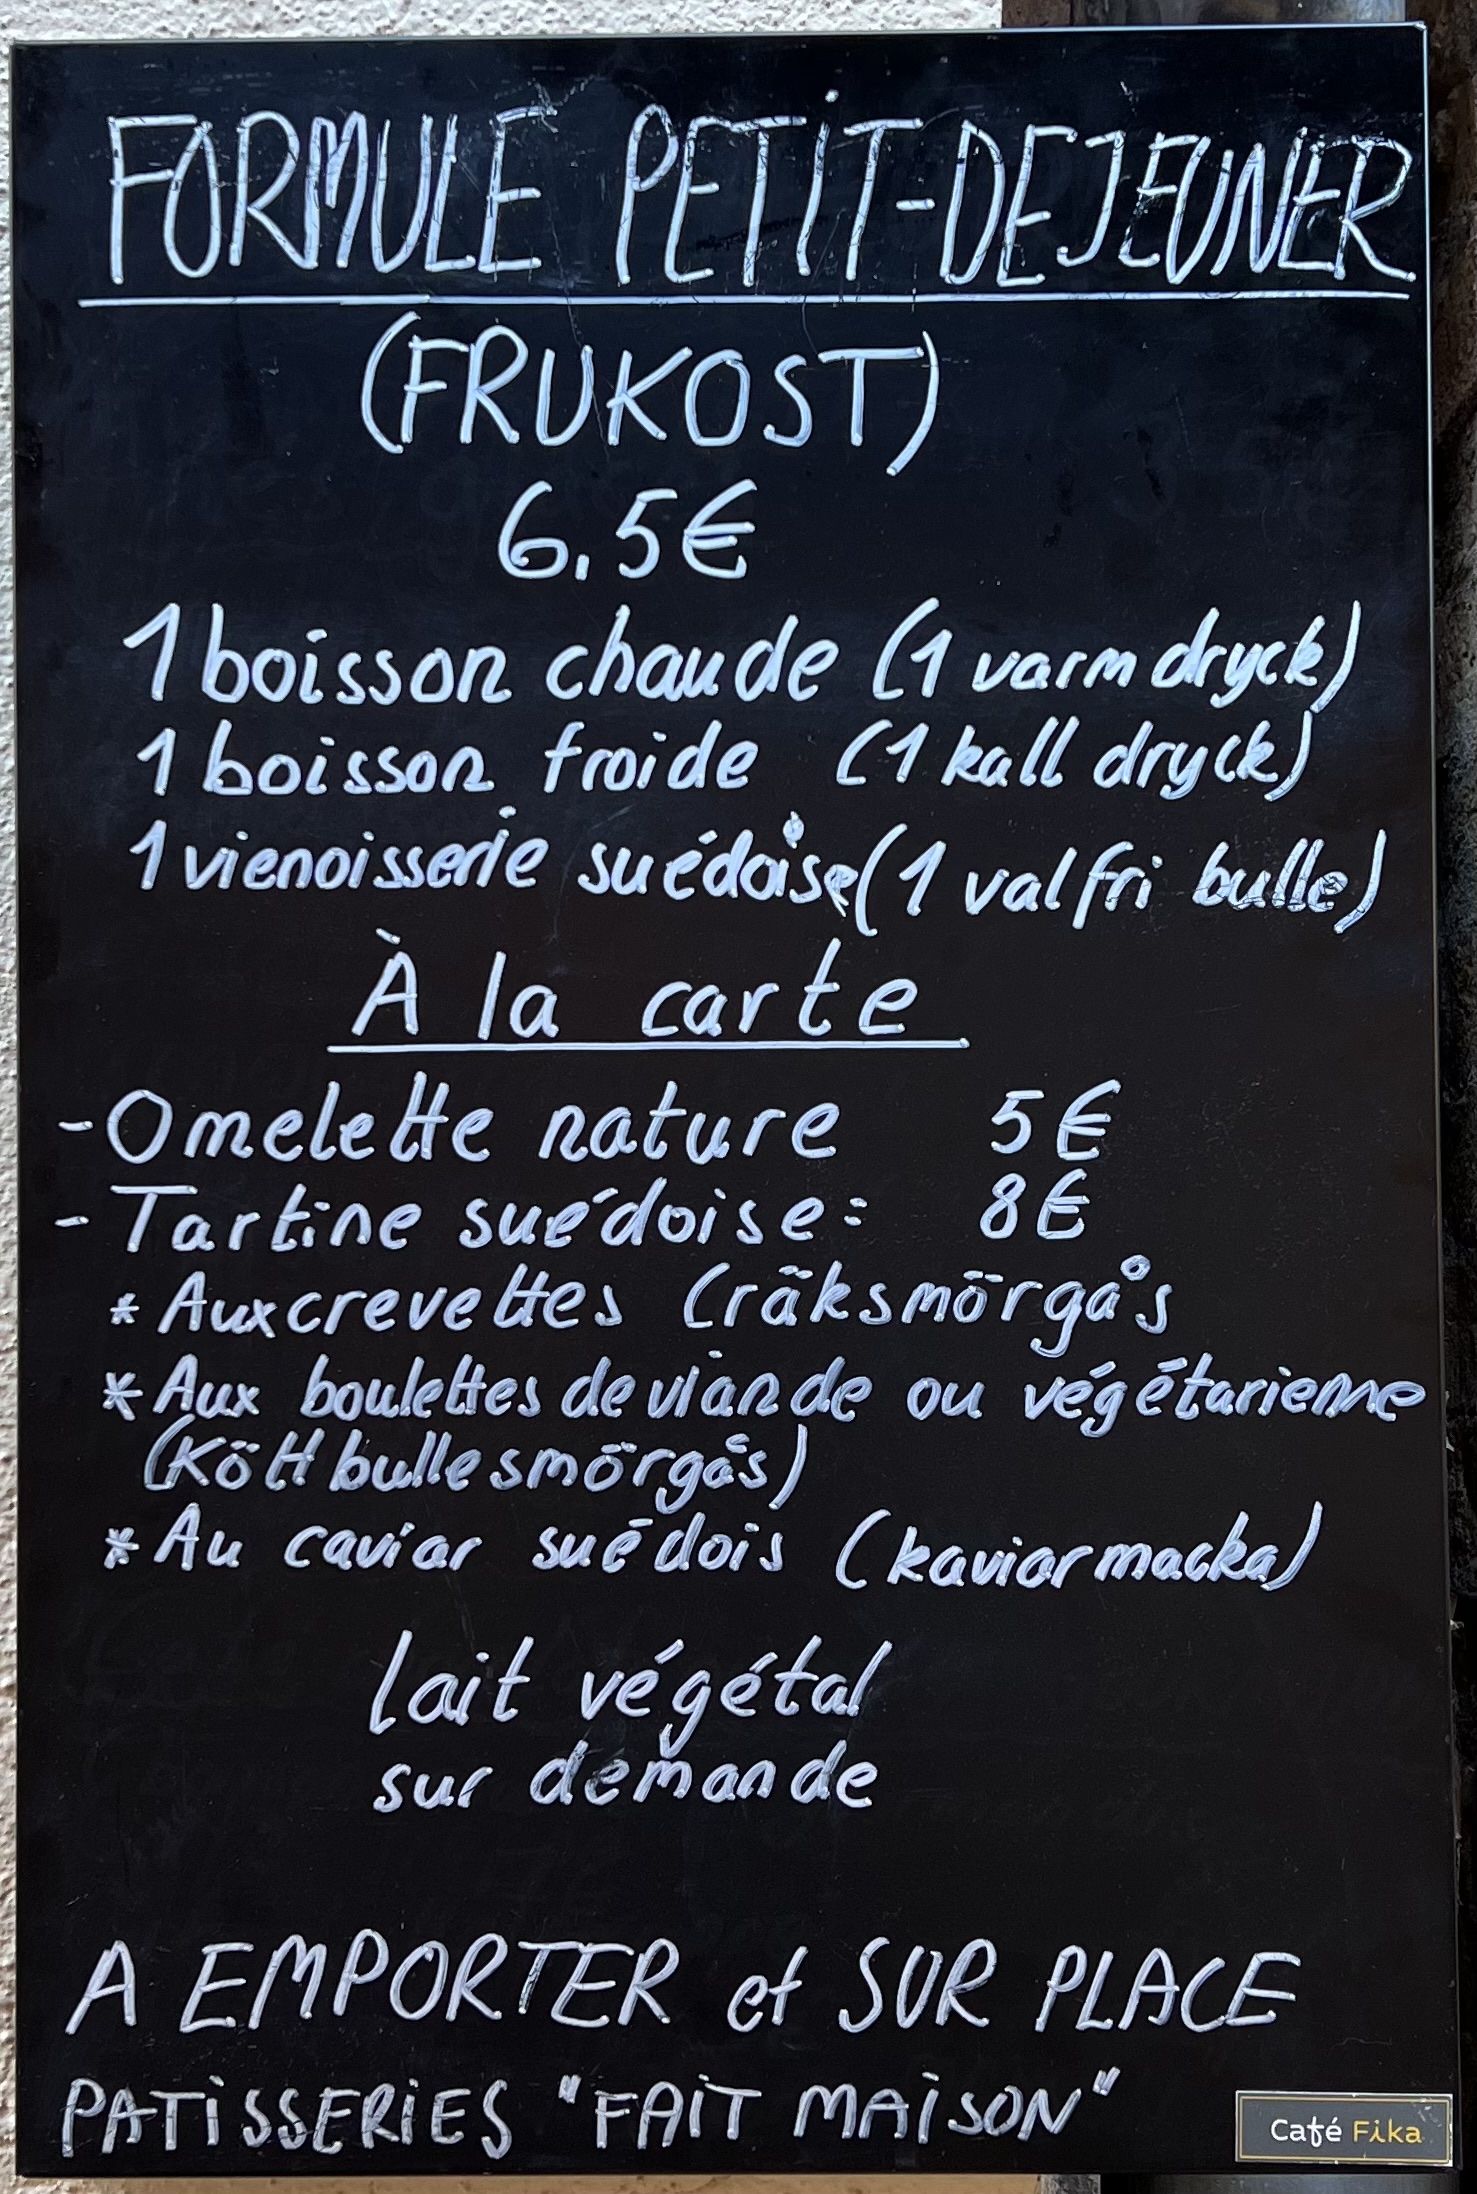 FORMULE PETIT-DEJEUNER
(FRUKOST)
6,5€
1 boisson chaude (1 varm dryck)
1 boisson froide (1 kall dryck)
1 vienoisserie suédoise (1 valfri bulle)
À la carte
- Omelette nature 5€
- Tartine suédoise: 8€
* Aux crevettes (räksmörgås
* Aux boulettes de viande ou végétarienne
(Köttbullesmörgås)
* Au caviar suédois (kaviarmacka)
lait végétal
sur demande
A EMPORTER et SUR PLACE
PATISSERIES "FAIT MAISON"
Café Fika